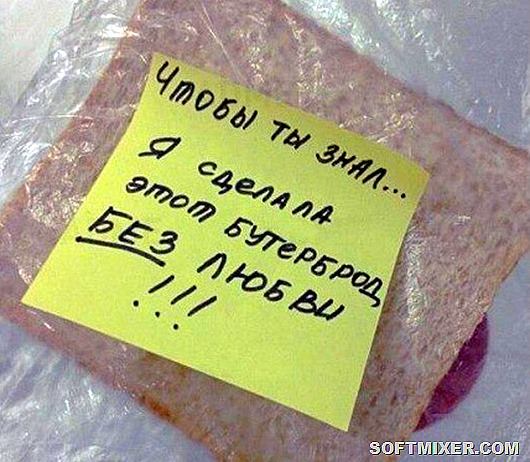 Чтобы ты знал...
Я сделала
этот бутерброд
БЕЗ любви
!!!
SOFTMIXER.COM